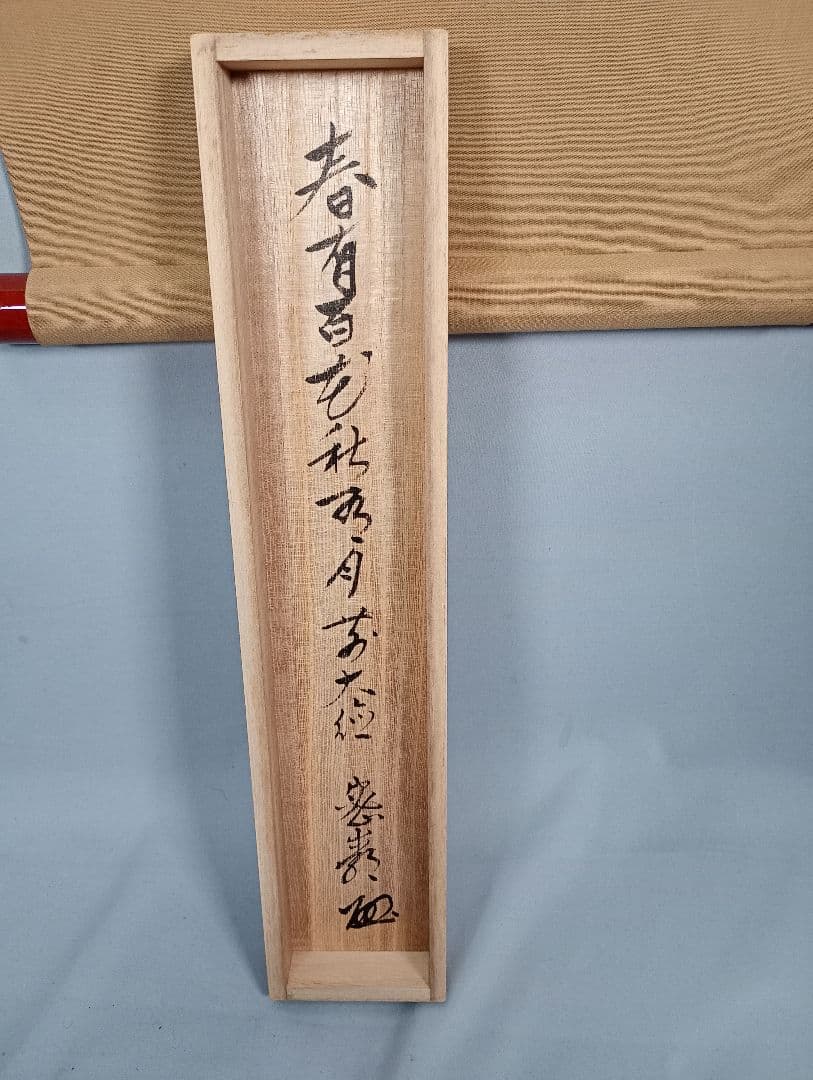 春有百花秋有月
前大徳